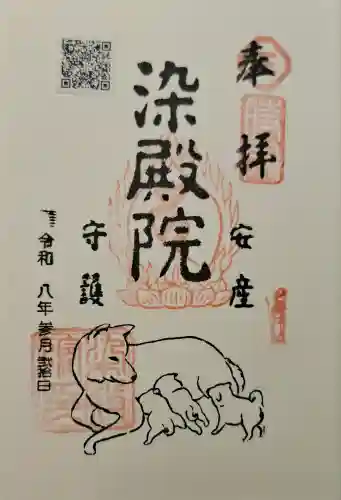 奉拝
安産
染殿院
守護
令和八年参月弐拾日